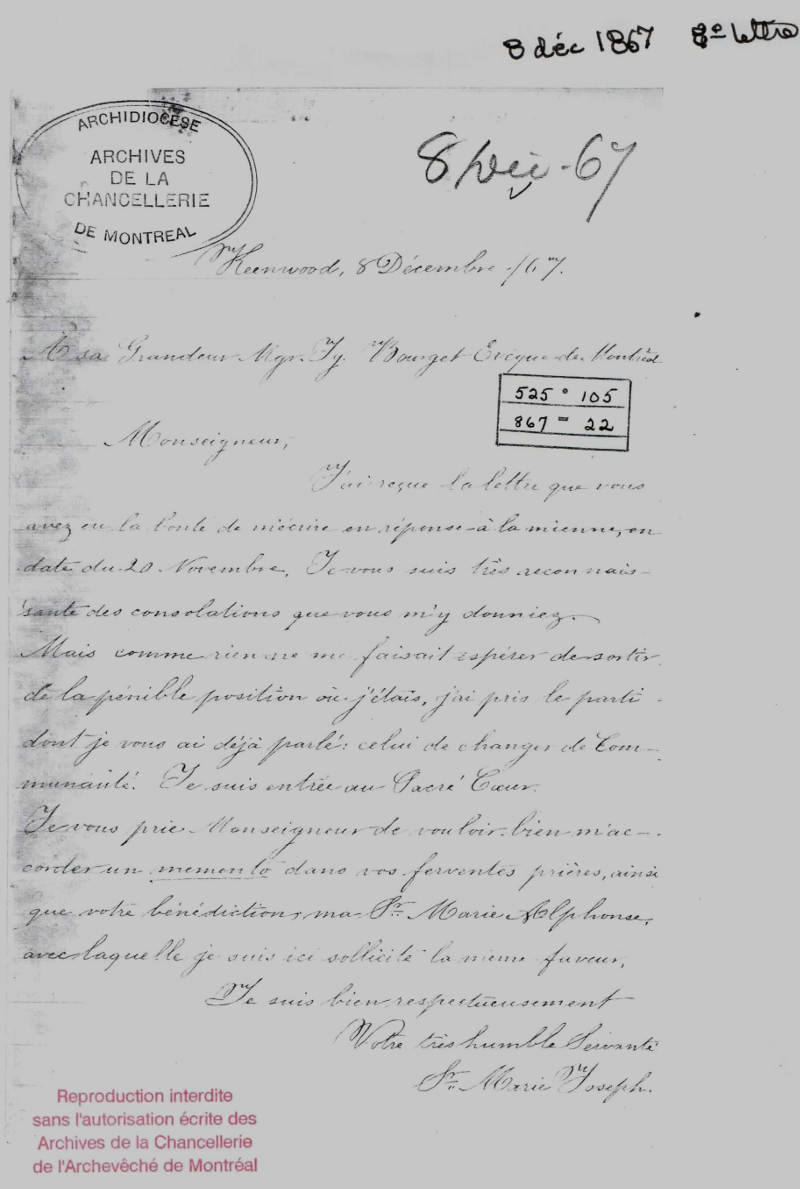 8 déc 1867 8e lettre
ARCHIDIOCÈSE
ARCHIVES
DE LA
CHANCELLERIE
DE MONTREAL
8 Déc - 67
Keenwood, 8 Décembre /67.
A sa Grandeur Mgr. Ig. Bourget Evêque de Montréal
525 • 105
867 = 22
Monseigneur,
J'ai reçue la lettre que vous
avez eu la bonté de m'écrire en réponse à la mienne, en
date du 20 Novembre. Je vous suis très reconnais-
sante des consolations que vous m'y donniez.
Mais comme rien ne me faisait espérer de sortir
de la pénible position où j'étais, j'ai pris le parti
dont je vous ai déjà parlé: celui de changer de Com-
munauté. Je suis entrée au Sacré Cœur.
Je vous prie Monseigneur de vouloir bien m'ac-
corder un memento dans vos ferventes prières, ainsi
que votre bénédiction, ma Sr. Marie Alphonse,
avec laquelle je suis ici sollicite la même faveur.
Je suis bien respectueusement
Votre très humble Servante
Sr. Marie Joseph.
Reproduction interdite
sans l'autorisation écrite des
Archives de la Chancellerie
de l'Archevêché de Montréal